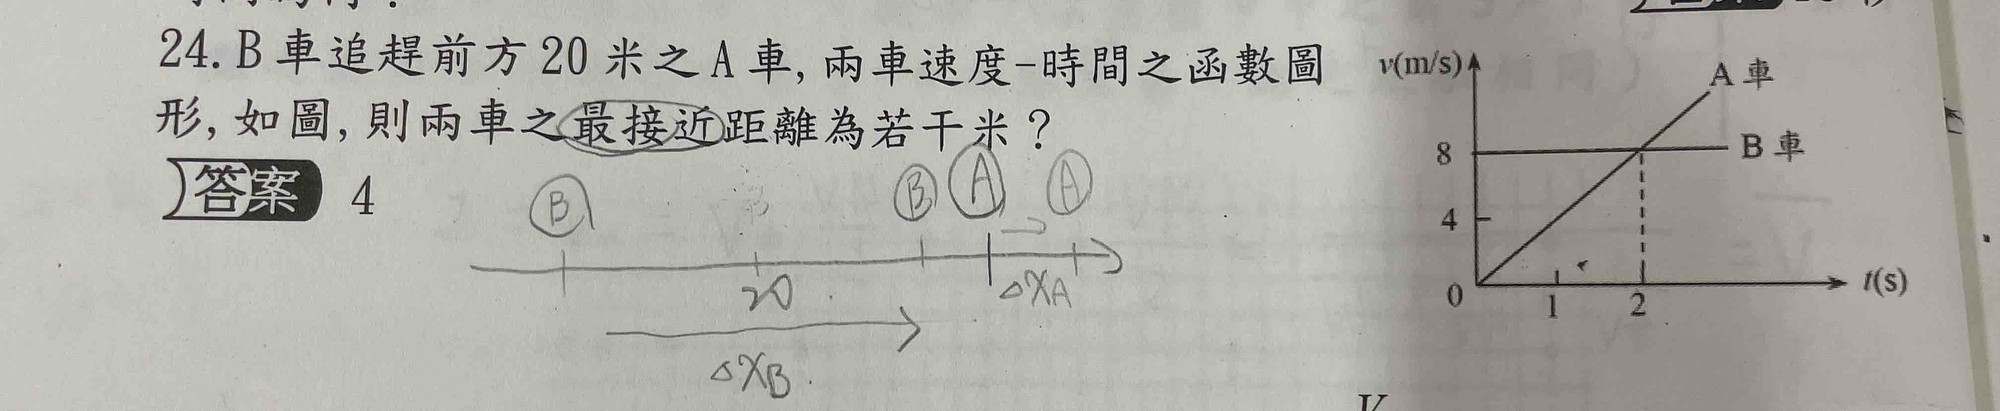 24. B 車追趕前方 20 米之 A 車, 兩車速度-時間之函數圖
形, 如圖, 則兩車之最接近距離為若干米?
答案 4
B B A A
20 ΔXA
ΔXB
v(m/s)
A 車
8 B 車
4
0 1 2 t(s)
V